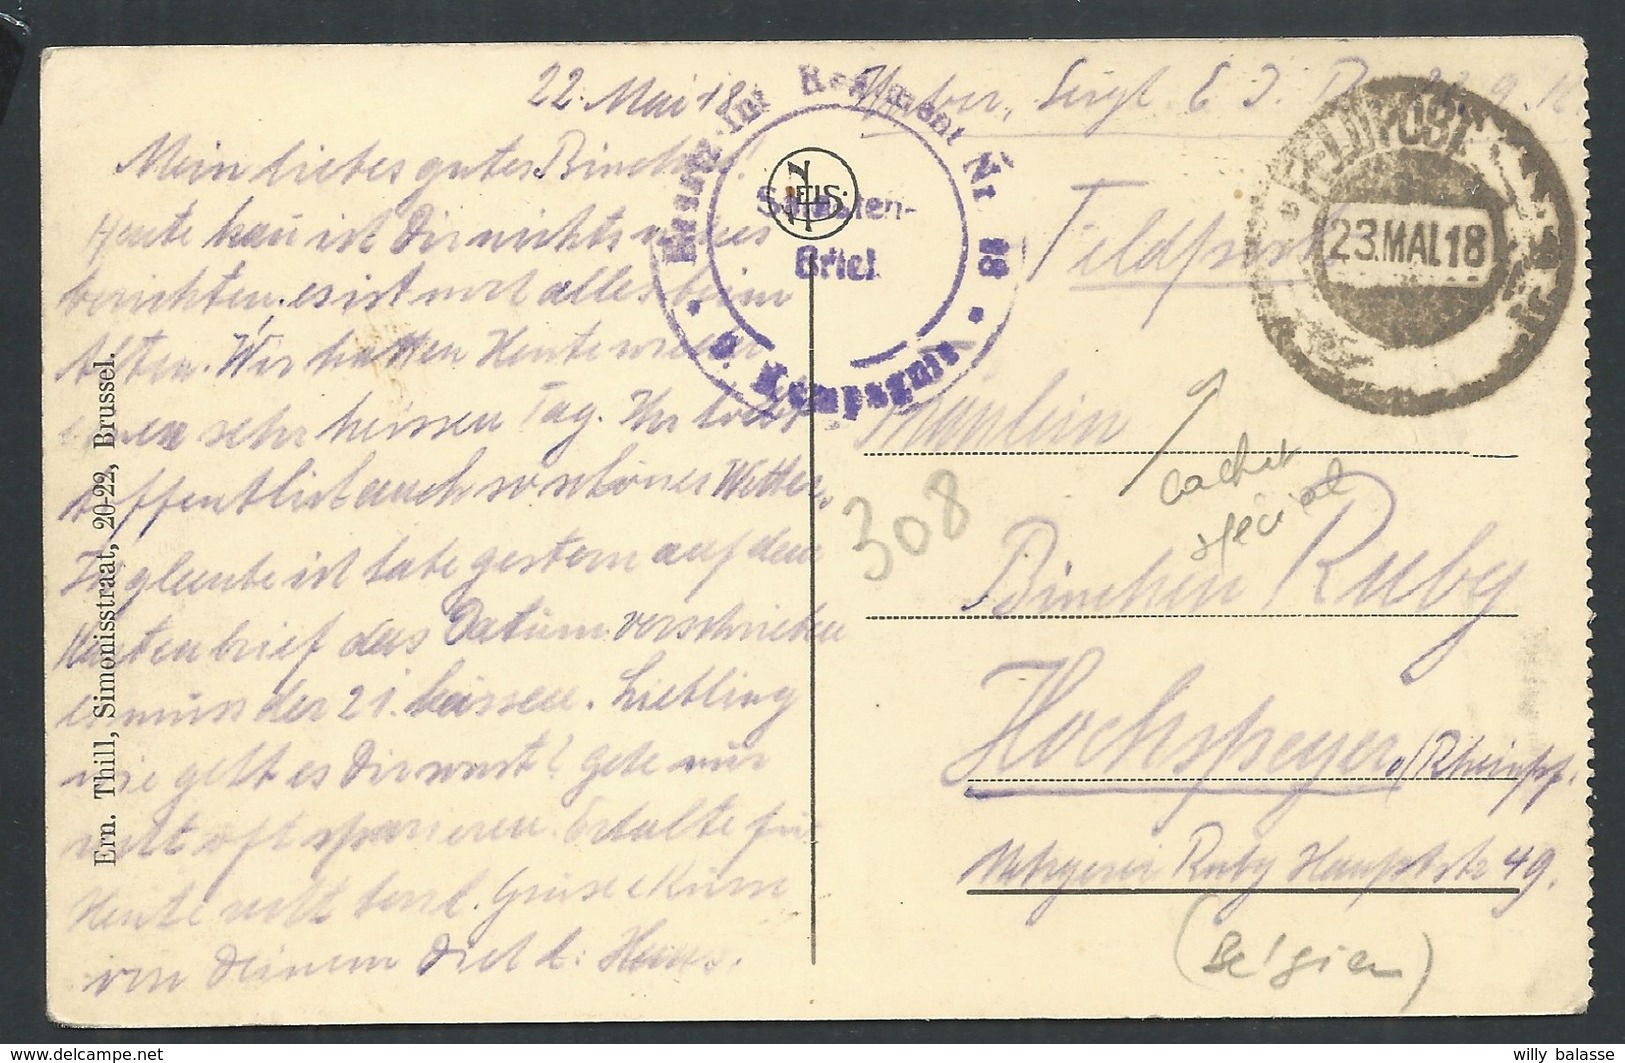 22. Mai 18.
Mein liebes gutes Binchen!
Heute kan ist Dir nichts neues
berichten. es ist noch alles beim
Alten. Wir hatten Heute wieder
einen sehr heissen Tag. Ihr habt
hoffentlich auch so schönes Wetter.
Ich glaube ich habe gestern auf dem
Kartenbrief das Datum verschrieben
es muss der 21. heissen. Liebling
wie geht es Dir sonst? gehe nur
recht oft spazieren. Erhalte für
Heute recht herzl. Grüsse Küsse
von Deinem Dich l. Hans.
Ern. Thill, Simonisstraat, 20-22, Brussel.
NELS
Regiment Nr
Soldaten-
Brief
Kompagnie
FELDPOST
23.MAI.18
Feldpost
Fräulein
cachet
spécial
308
Binchen Ruby
Hochspeyer /Rheinpf.
Metzgerei Ruby Hauptstr 49.
(Belgien)
willy balasse